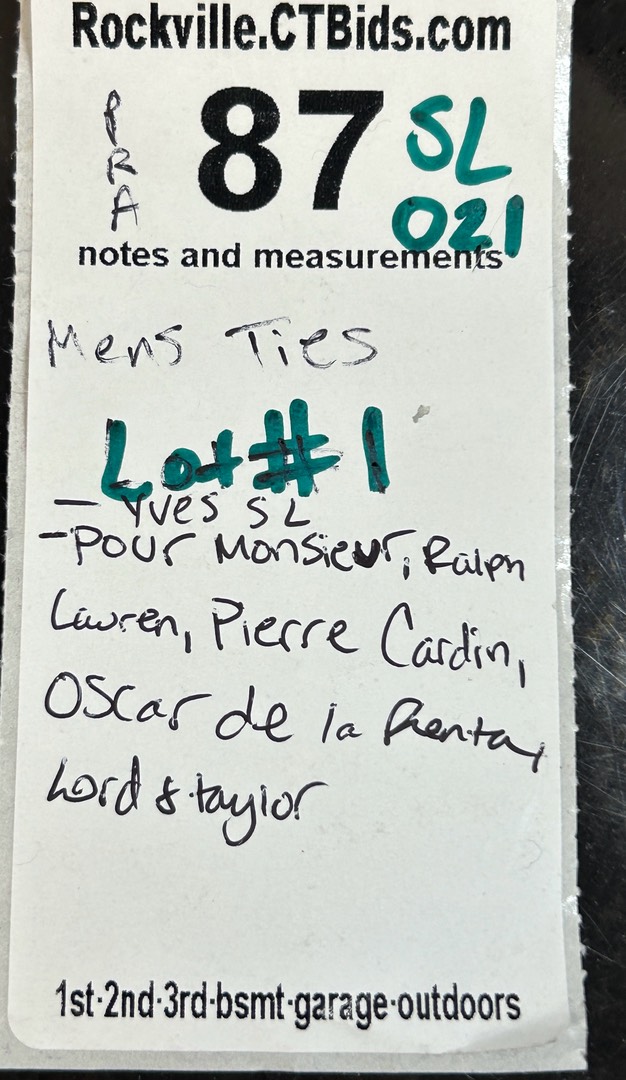 Rockville.CTBids.com
PRA 87 SL
021
notes and measurements
Mens Ties
Lot # 1
- Yves SL
- Pour Monsieur, Ralph
Lauren, Pierre Cardin,
Oscar de la Renta,
Lord & taylor
1st·2nd·3rd·bsmt·garage·outdoors